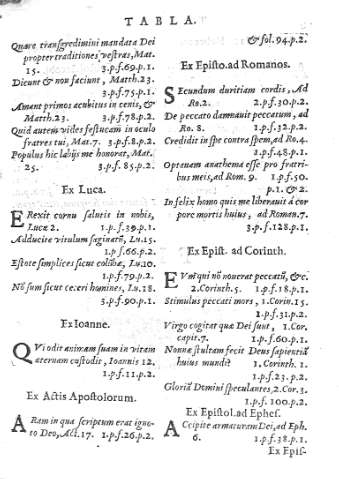 TABLA.
Quare transgredimini mandata Dei
propter traditiones vestras, Mat.
15. 3.p.f.69.p.1.
Dicunt & non faciunt, Matth.23.
3.p.f.75.p.1.
Amant primos accubitus in cenis, &
Matth.23. 3.p.f.78.p.2.
Quid autem vides festucam in oculo
fratres tui, Mat.7. 3.p.f.8.p.2.
Populus hic labijs me honorat, Mat.
25. 3.p.f.85.p.2.
Ex Luca.
EREXIT cornu salutis in nobis,
Lucæ 2. 1.p.f.39.p.1.
Adducite vitulum saginatũ, Lu.15.
1.p.f.66.p.2.
Estote simplices sicut colũbæ, Lu.10.
1.p.f.79.p.2.
Nõ sum sicut ceteri homines, Lu.18.
3.p.f.90.p.1.
Ex Ioanne.
QVi odit animam suam in vitam
æternam custodit, Ioannis 12.
1.p.f.11.p.2.
Ex Actis Apostolorum.
ARam in qua scriptum erat igno-
to Deo, Act.17. 1.p.f.26.p.2.
& fol.94.p.2.
Ex Episto.ad Romanos.
SEcundum duritiam cordis, Ad
Ro.2. 2.p.f.30.p.2.
De peccato damnauit peccatum, ad
Ro. 8. 1.p.f.32.p.2.
Credidit in spe contra spem, ad Ro.4.
1.p.f.48.p.1.
Optanam anathema esse pro fratri-
bus meis, ad Rom. 9. 1.p.f.50.
p.1. & 2.
Infelix homo quis me liberauit à cor
pore mortis huius, ad Roman.7.
3.p.f.128.p.1.
Ex Epist. ad Corinth.
EVm qui nõ nouerat peccatũ, &c.
2.Corinth.5. 1.p.f.18.p.1.
Stimulus peccati mors, 1.Corin.15.
1.p.f.31.p.2.
Virgo cogitat quæ Dei sunt, 1.Cor.
capit.7. 1.p.f.60.p.1.
Nonnæ stultam fecit Deus sapientiã
huius mundi? 1.Corinth.1.
1.p.f.23.p.2.
Gloriã Domini speculantes, 2.Cor.3.
1.p.f.100.p.2.
Ex Epistol.ad Ephes.
ACcipite armaturam Dei, ad Eph.
6. 1.p.f.38.p.1.
Ex Epis-